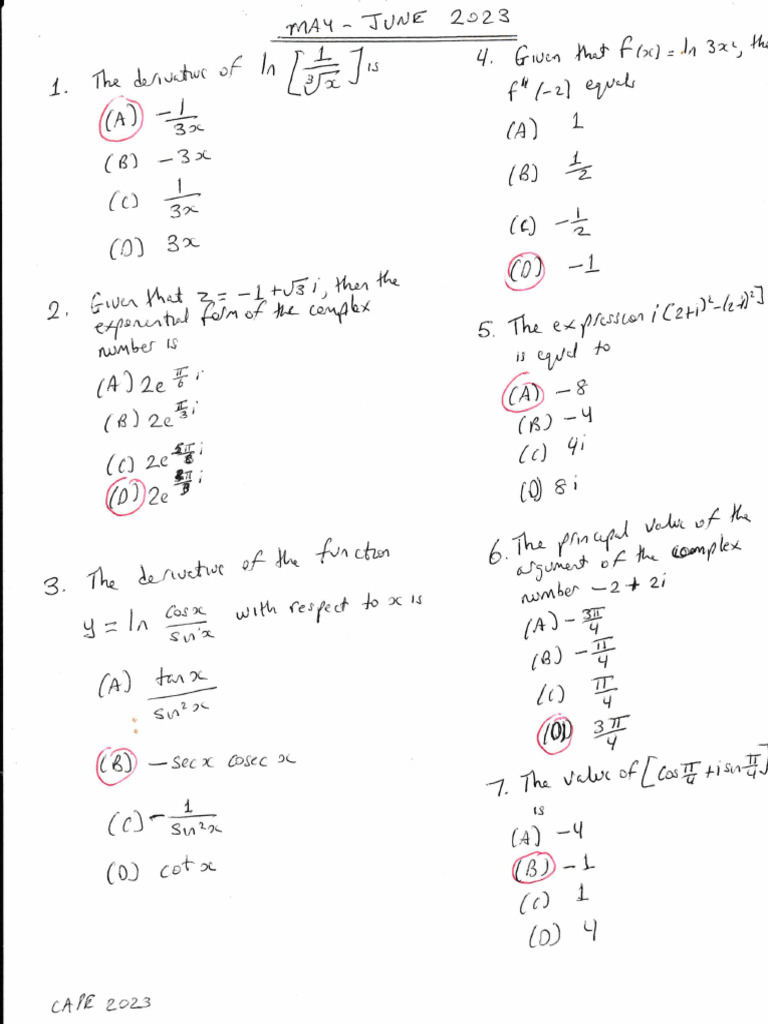 MAY - JUNE 2023
1. The derivative of ln [1/∛x] is
(A) -1/3x
(B) -3x
(C) 1/3x
(D) 3x
2. Given that z = -1 + √3 i, then the
exponential form of the complex
number is
(A) 2e^(π/6 i)
(B) 2e^(π/3 i)
(C) 2e
(D) 2e
3. The derivative of the function
y = ln cosx/sinx with respect to x is
(A) tanx/sin²x
(B) -secx cosec x
(C) -1/sin²x
(D) cotx
4. Given that f(x) = ln 3x², the
f"(-2) equals
(A) 1
(B) 1/2
(C) -1/2
(D) -1
5. The expression i[(2+i)²-(2+i)²]
is equal to
(A) -8
(B) -4
(C) 4i
(D) 8i
6. The principal value of the
argument of the complex
number -2 + 2i
(A) -3π/4
(B) -π/4
(C) π/4
(D) 3π/4
7. The value of [cos π/4 + i sin π/4]
is
(A) -4
(B) -1
(C) 1
(D) 4
CAPE 2023